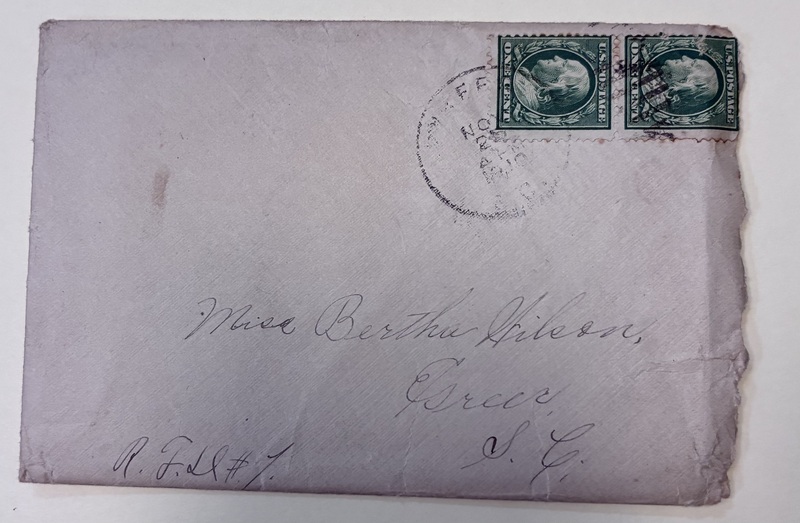 U.S. POSTAGE
ONE CENT
U.S. POSTAGE
ONE CENT
Miss Bertha Wilson,
Greer,
S. C.
R. F. D # 7.